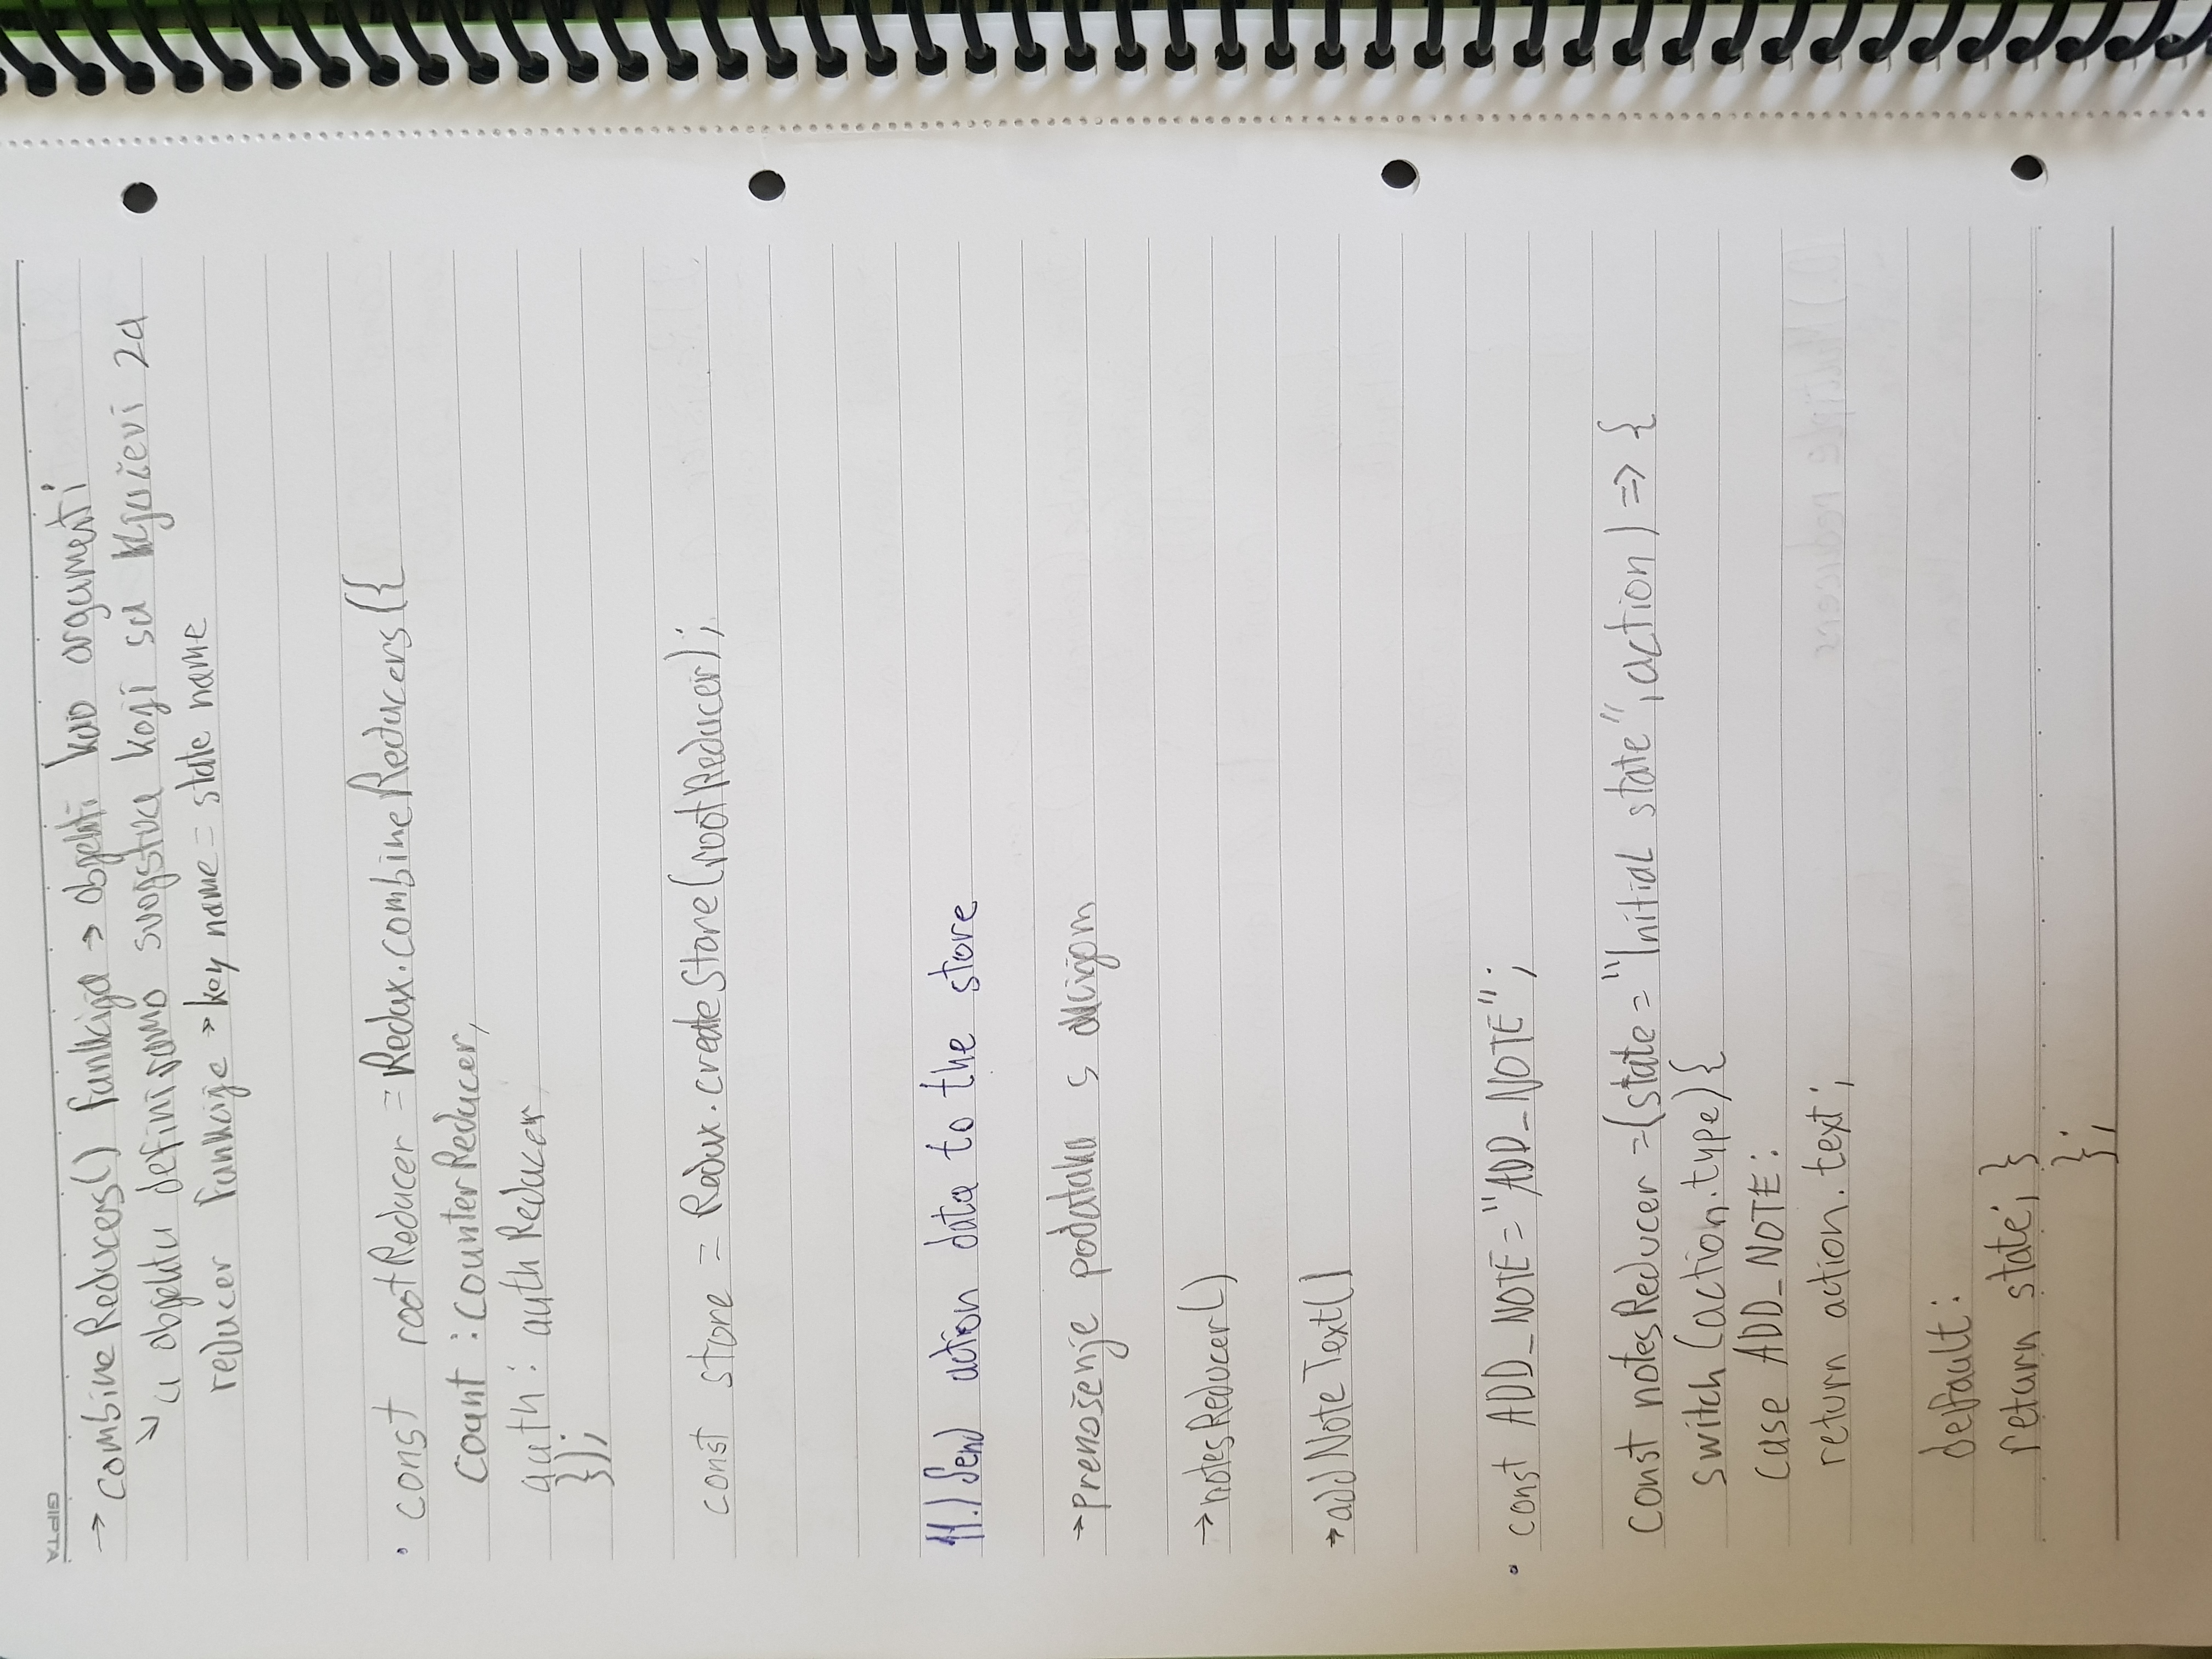 GIPTA
→ combineReducers() funkcija → objekti kao argumenti
↘ u objektu definiramo svojstva koji su ključevi za
reducer funkcije → key name = state name
• const rootReducer = Redux.combineReducers({
count : counterReducer,
auth : authReducer
});
const store = Redux.createStore(rootReducer);
11.) Send action data to the store
→ prenošenje podataka s akcijom
→ notesReducer()
→ addNoteText()
• const ADD_NOTE = "ADD_NOTE";
const notesReducer = (state = "Initial state", action) => {
switch (action.type) {
case ADD_NOTE:
return action.text;
default:
return state; }
};
10.) Multiple reducers